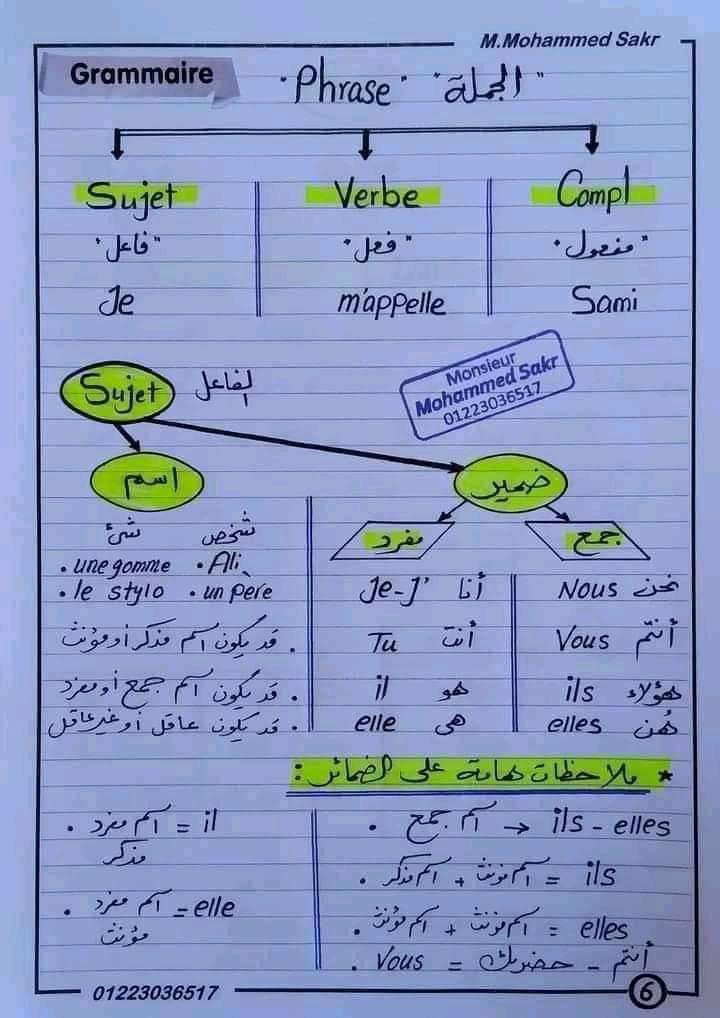 M.Mohammed Sakr
Grammaire
"Phrase" "الجملة"
Sujet Verbe Compl
"فاعل" "فعل" "مفعول"
Je m'appelle Sami
Monsieur
Mohammed Sakr
01223036517
Sujet الفاعل
اسم ضمير
شئ شخص مفرد جمع
• une gomme • Ali
• le stylo • un père
Je-J' أنا Nous نحن
Tu أنت Vous أنتم
il هو ils هؤلاء
elle هى elles هُن
• قد يكون اسم مذكر أو مؤنث
• قد يكون اسم جمع أو مفرد
• قد يكون عاقل أو غير عاقل
* ملاحظات هامة على الضمائر:
ils - elles → اسم جمع •
ils = اسم مؤنث + اسم مذكر •
elles = اسم مؤنث + اسم مؤنث •
أنتم - حضرتك = Vous •
il = اسم مفرد •
مذكر
elle = اسم مفرد •
مؤنث
01223036517
6